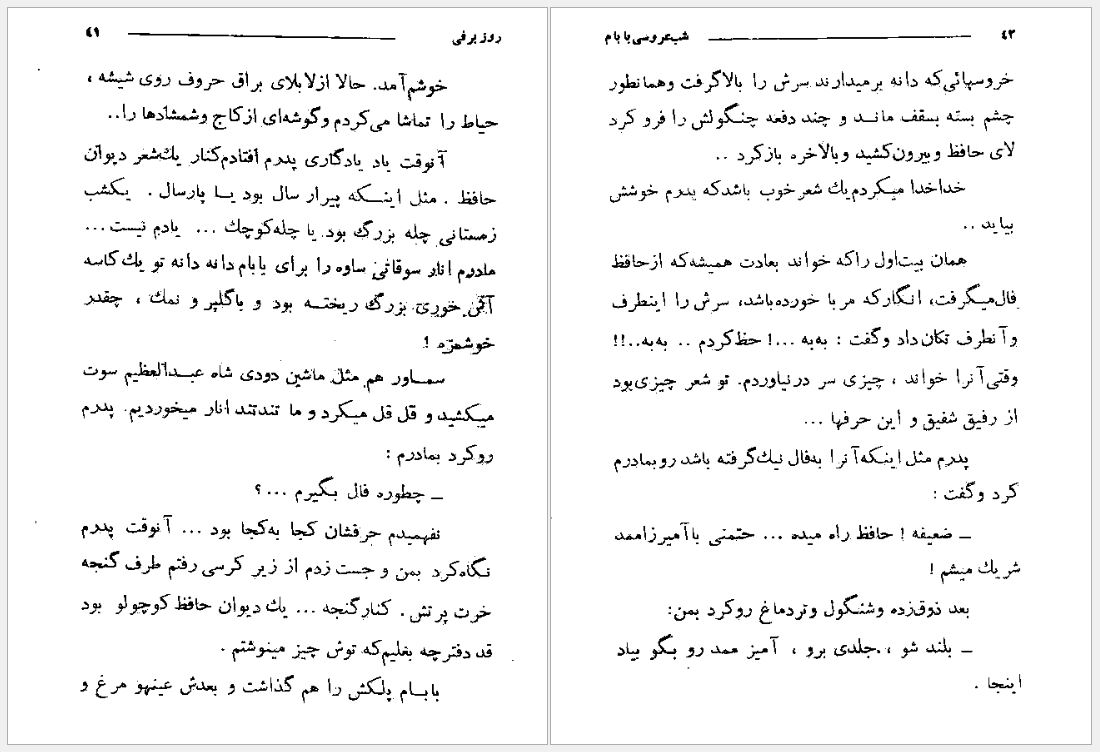 روز برفی ٤١
خوشم آمد. حالا ازلابلای براق حروف روی شیشه ،
حیاط را تماشا می‌کردم وگوشه‌ای ازکاج وشمشادها را..
آنوقت یاد یادگاری پدرم افتادم‌کنار یك‌شعر دیوان
حافظ . مثل اینـکه پیرار سال بود یـا پارسال . یـکشب
زمستانی چله بزرگ بود یا چله‌کوچك ... یادم نیست...
مادرم انار سوقاتی ساوه را برای بابام دانه دانه تو یك کاسه
آش خوری بزرگ ریختـه بود و باگلپر و نمك ، چقدر
خوشمزه !
سمـاور هم مثل ماشین دودی شاه عبـدالعظیم سوت
میـکشید و قل قل میـکرد و ما تندتند انار میخوردیم. پدرم
روکرد بمادرم :
ـ چطوره فال بـگیرم ...؟
نفهمیدم حرفشان کجا به‌کجا بود ... آنوقت پدرم
نگاه‌کرد بمن و جست زدم از زیر کرسی رفتم طرف گنجه
خرت پرتش. کنارگنجه ... یك دیوان حافظ کوچولو بود
قد دفترچه بغلیم‌که توش چیز مینوشتم .
بابـام پلـکش را هم گذاشت و بعدش عینهو مرغ و
٤٢ شب‌عروسی بابام
خروسهائی‌که دانه برمیدارند سرش را بالاگرفت وهمانطور
چشم بسته بسقف مانـد و چند دفعه چنـگولش را فرو کرد
لای حافظ وبیرون‌کشید وبالاخره بازکرد ..
خداخدا میـکردم یك شعر خوب باشدکه پدرم خوشش
بیاید ..
همان بیت‌اول راکه خواند بعادت همیشه‌که ازحافظ
فال‌میـگرفت، انـگارکه مربا خورده‌باشد، سرش را اینطرف
وآنطرف تکان‌داد وگفت : به‌به ...! حظ‌کردم .. به‌به..!!
وقتی‌آنرا خواند ، چیزی سر درنیاوردم. تو شعر چیزی‌بود
از رفیق شفیق و این حرفها ...
پدرم مثل اینـکه‌آنرا به‌فال نیك‌گرفته باشد روبمادرم
کرد وگفت :
ـ ضعیفه ! حافظ راه میده ... حتمنی باآمیرزاممد
شریك میشم !
بعد ذوق‌زده وشنـگول وتردماغ روکرد بمن:
ـ بلند شو ، جلدی برو ، آمیز ممد رو بـگو بیاد
اینجا .